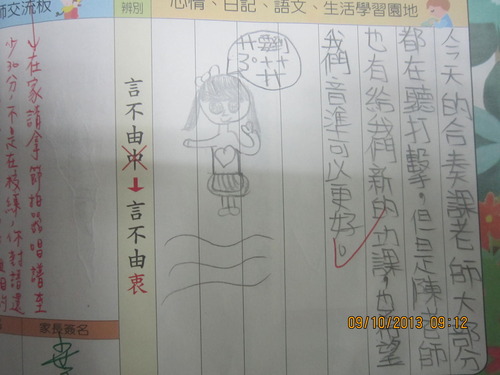 心情、日記、語文、生活學習園地
今天的合奏課老師大部分
都在聽打擊,但是陳老師
也有給我們新的功課,也希望
我們音準可以更好。
辨別
言不由中
言不由衷
師交流板
在家請拿節拍器唱譜至
少30分,不是在校練,你對語還
家長簽名
09/10/2013 09:12